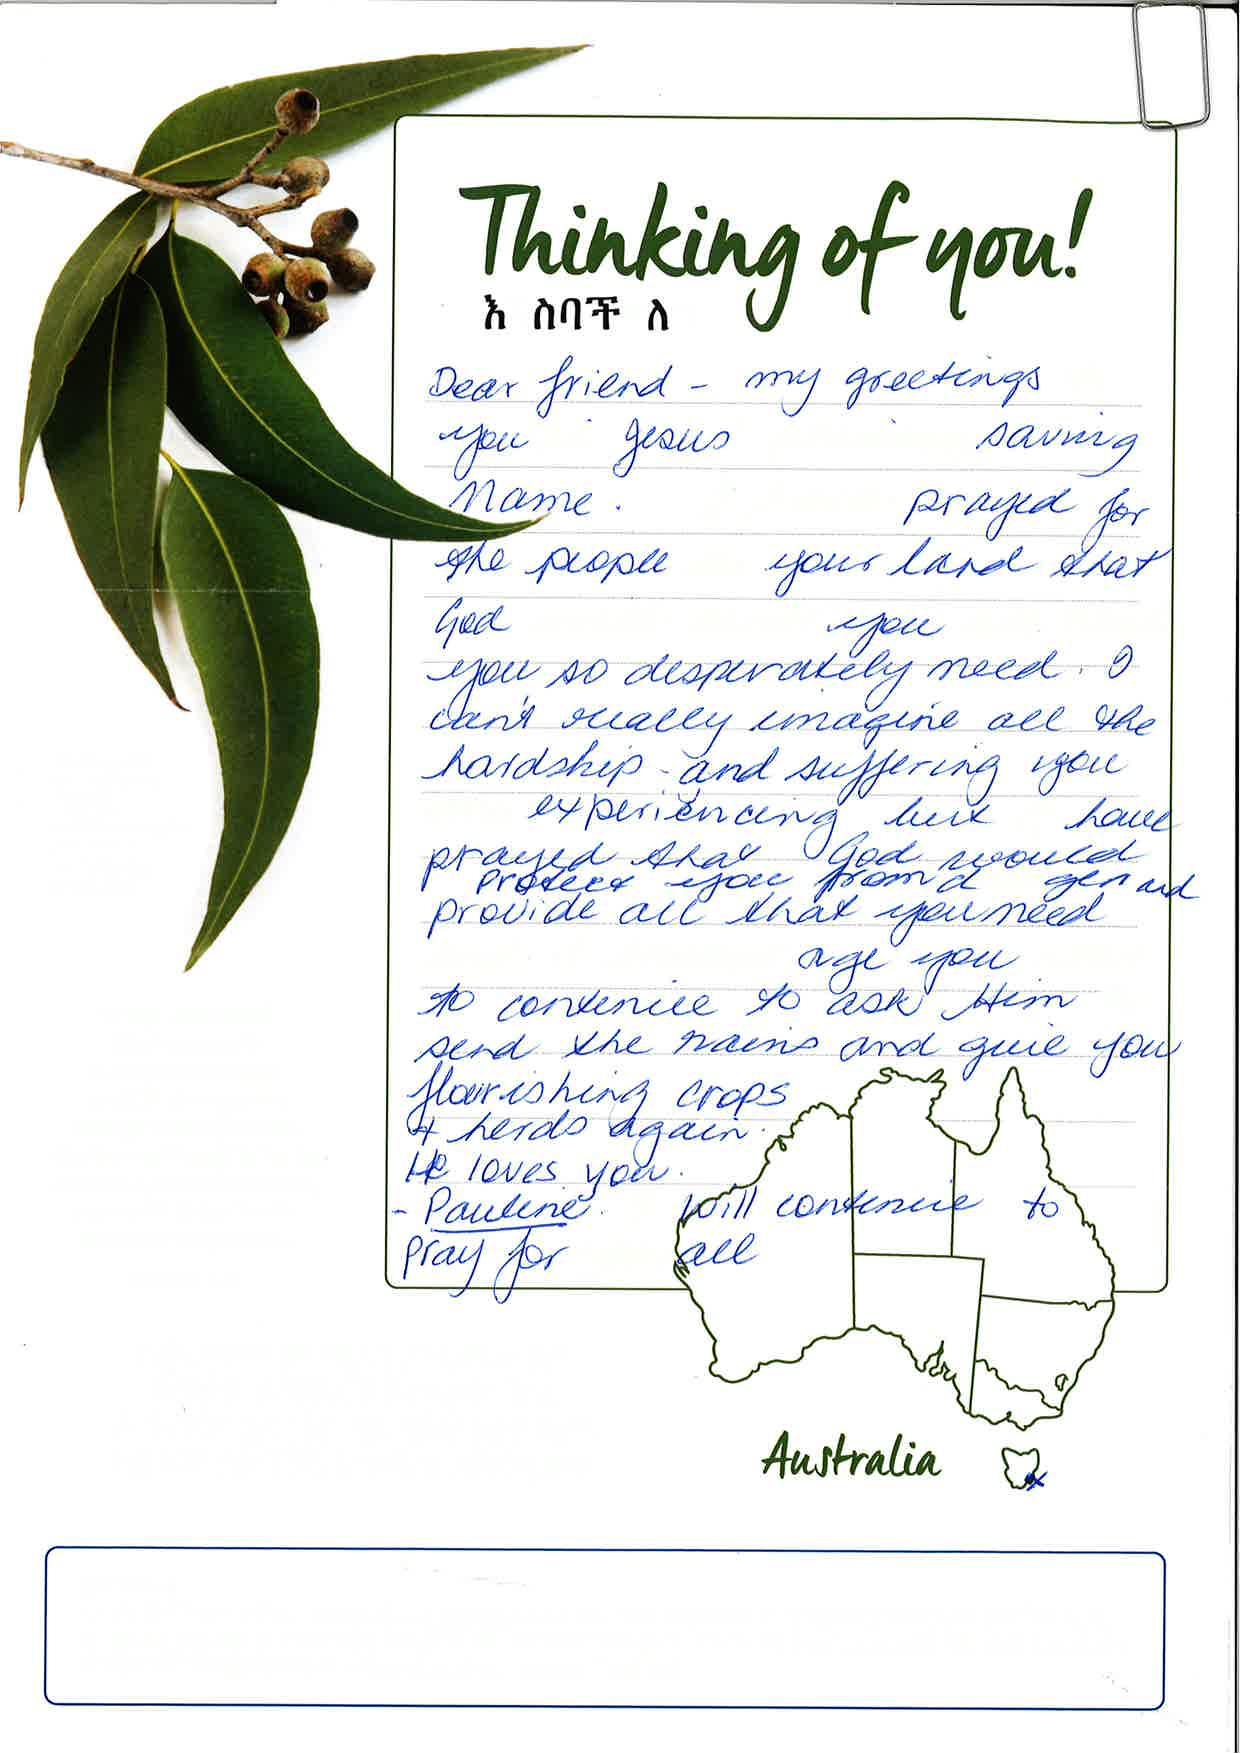 Thinking of you!
እ ስባች ለ
Dear friend - my greetings
you Jesus saving
Name. prayed for
the people your land that
God you
you so desperately need. I
can't really imagine all the
hardship and suffering you
experiencing but have
prayed that God would
protect you from d ger and
provide all that you need
age you
to continue to ask Him
send the rains and give you
flourishing crops
+ herds again.
He loves you.
- Pauline. Will continue to
pray for all
Australia
x